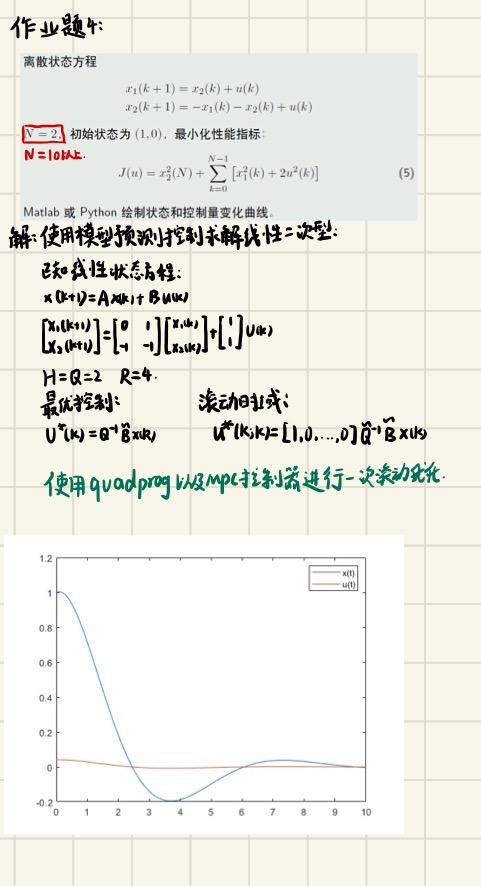 作业题4:
离散状态方程
x₁(k + 1) = x₂(k) + u(k)
x₂(k + 1) = −x₁(k) − x₂(k) + u(k)
N = 2, 初始状态为 (1, 0), 最小化性能指标:
N=10以上.
J(u) = x₂²(N) + ∑_{k=0}^{N−1} [x₁²(k) + 2u²(k)] (5)
Matlab 或 Python 绘制状态和控制量变化曲线。
解:使用模型预测控制求解线性二次型:
已知线性状态方程:
x(k+1)=Ax(k)+Bu(k)
[x₁(k+1) x₂(k+1)]=[0 1 -1 -1][x₁(k) x₂(k)]+[1 1]u(k)
H=Q=2 R=4.
最优控制: 滚动时域:
U*(k)=Q⁻¹B̃x(k) u*(k;k)=[1,0,...,0]Q̃⁻¹B̃x(k)
使用quadprog以及mpc控制器进行一次滚动优化.
1.2
x(t)
u(t)
1
0.8
0.6
0.4
0.2
0
-0.2
0 1 2 3 4 5 6 7 8 9 10